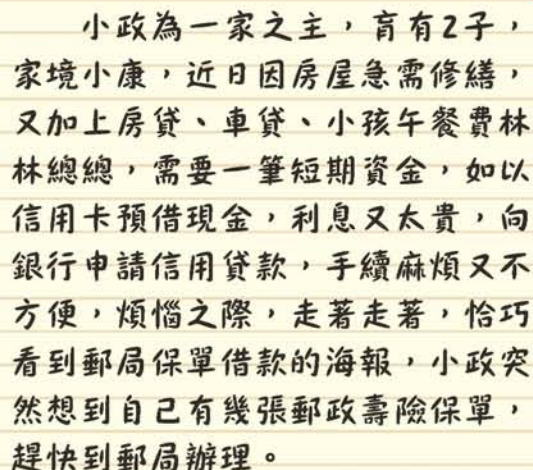 小政為一家之主，育有2子，
家境小康，近日因房屋急需修繕，
又加上房貸、車貸、小孩午餐費林
林總總，需要一筆短期資金，如以
信用卡預借現金，利息又太貴，向
銀行申請信用貸款，手續麻煩又不
方便，煩惱之際，走著走著，恰巧
看到郵局保單借款的海報，小政突
然想到自己有幾張郵政壽險保單，
趕快到郵局辦理。